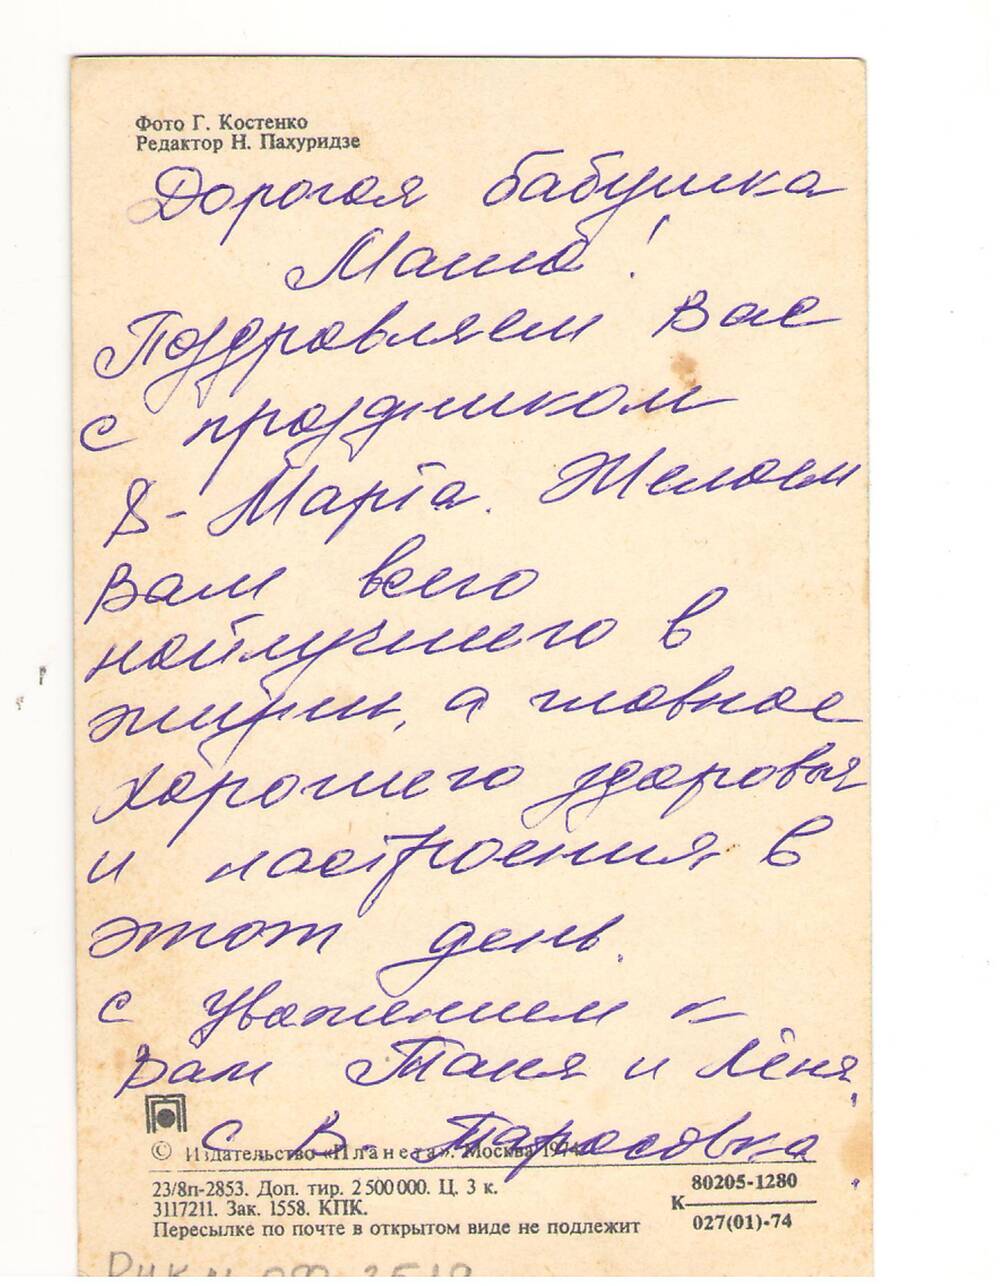 Фото Г. Костенко
Редактор Н. Пахуридзе
Дорогая бабушка
Маша!
Поздравляем Вас
с праздником
8-Марта. Желаем
Вам всего
найлучшего в
жизни, а главное
хорошего здоровья
и настроения в
этот день.
с уважением к
Вам Таня и Лёня
с В. Тарасовка
© Издательство «Планета». Москва 1974
23/8п-2853. Доп. тир. 2 500 000. Ц. 3 к.
3117211. Зак. 1558. КПК.
Пересылке по почте в открытом виде не подлежит
80205-1280
К
027(01)-74